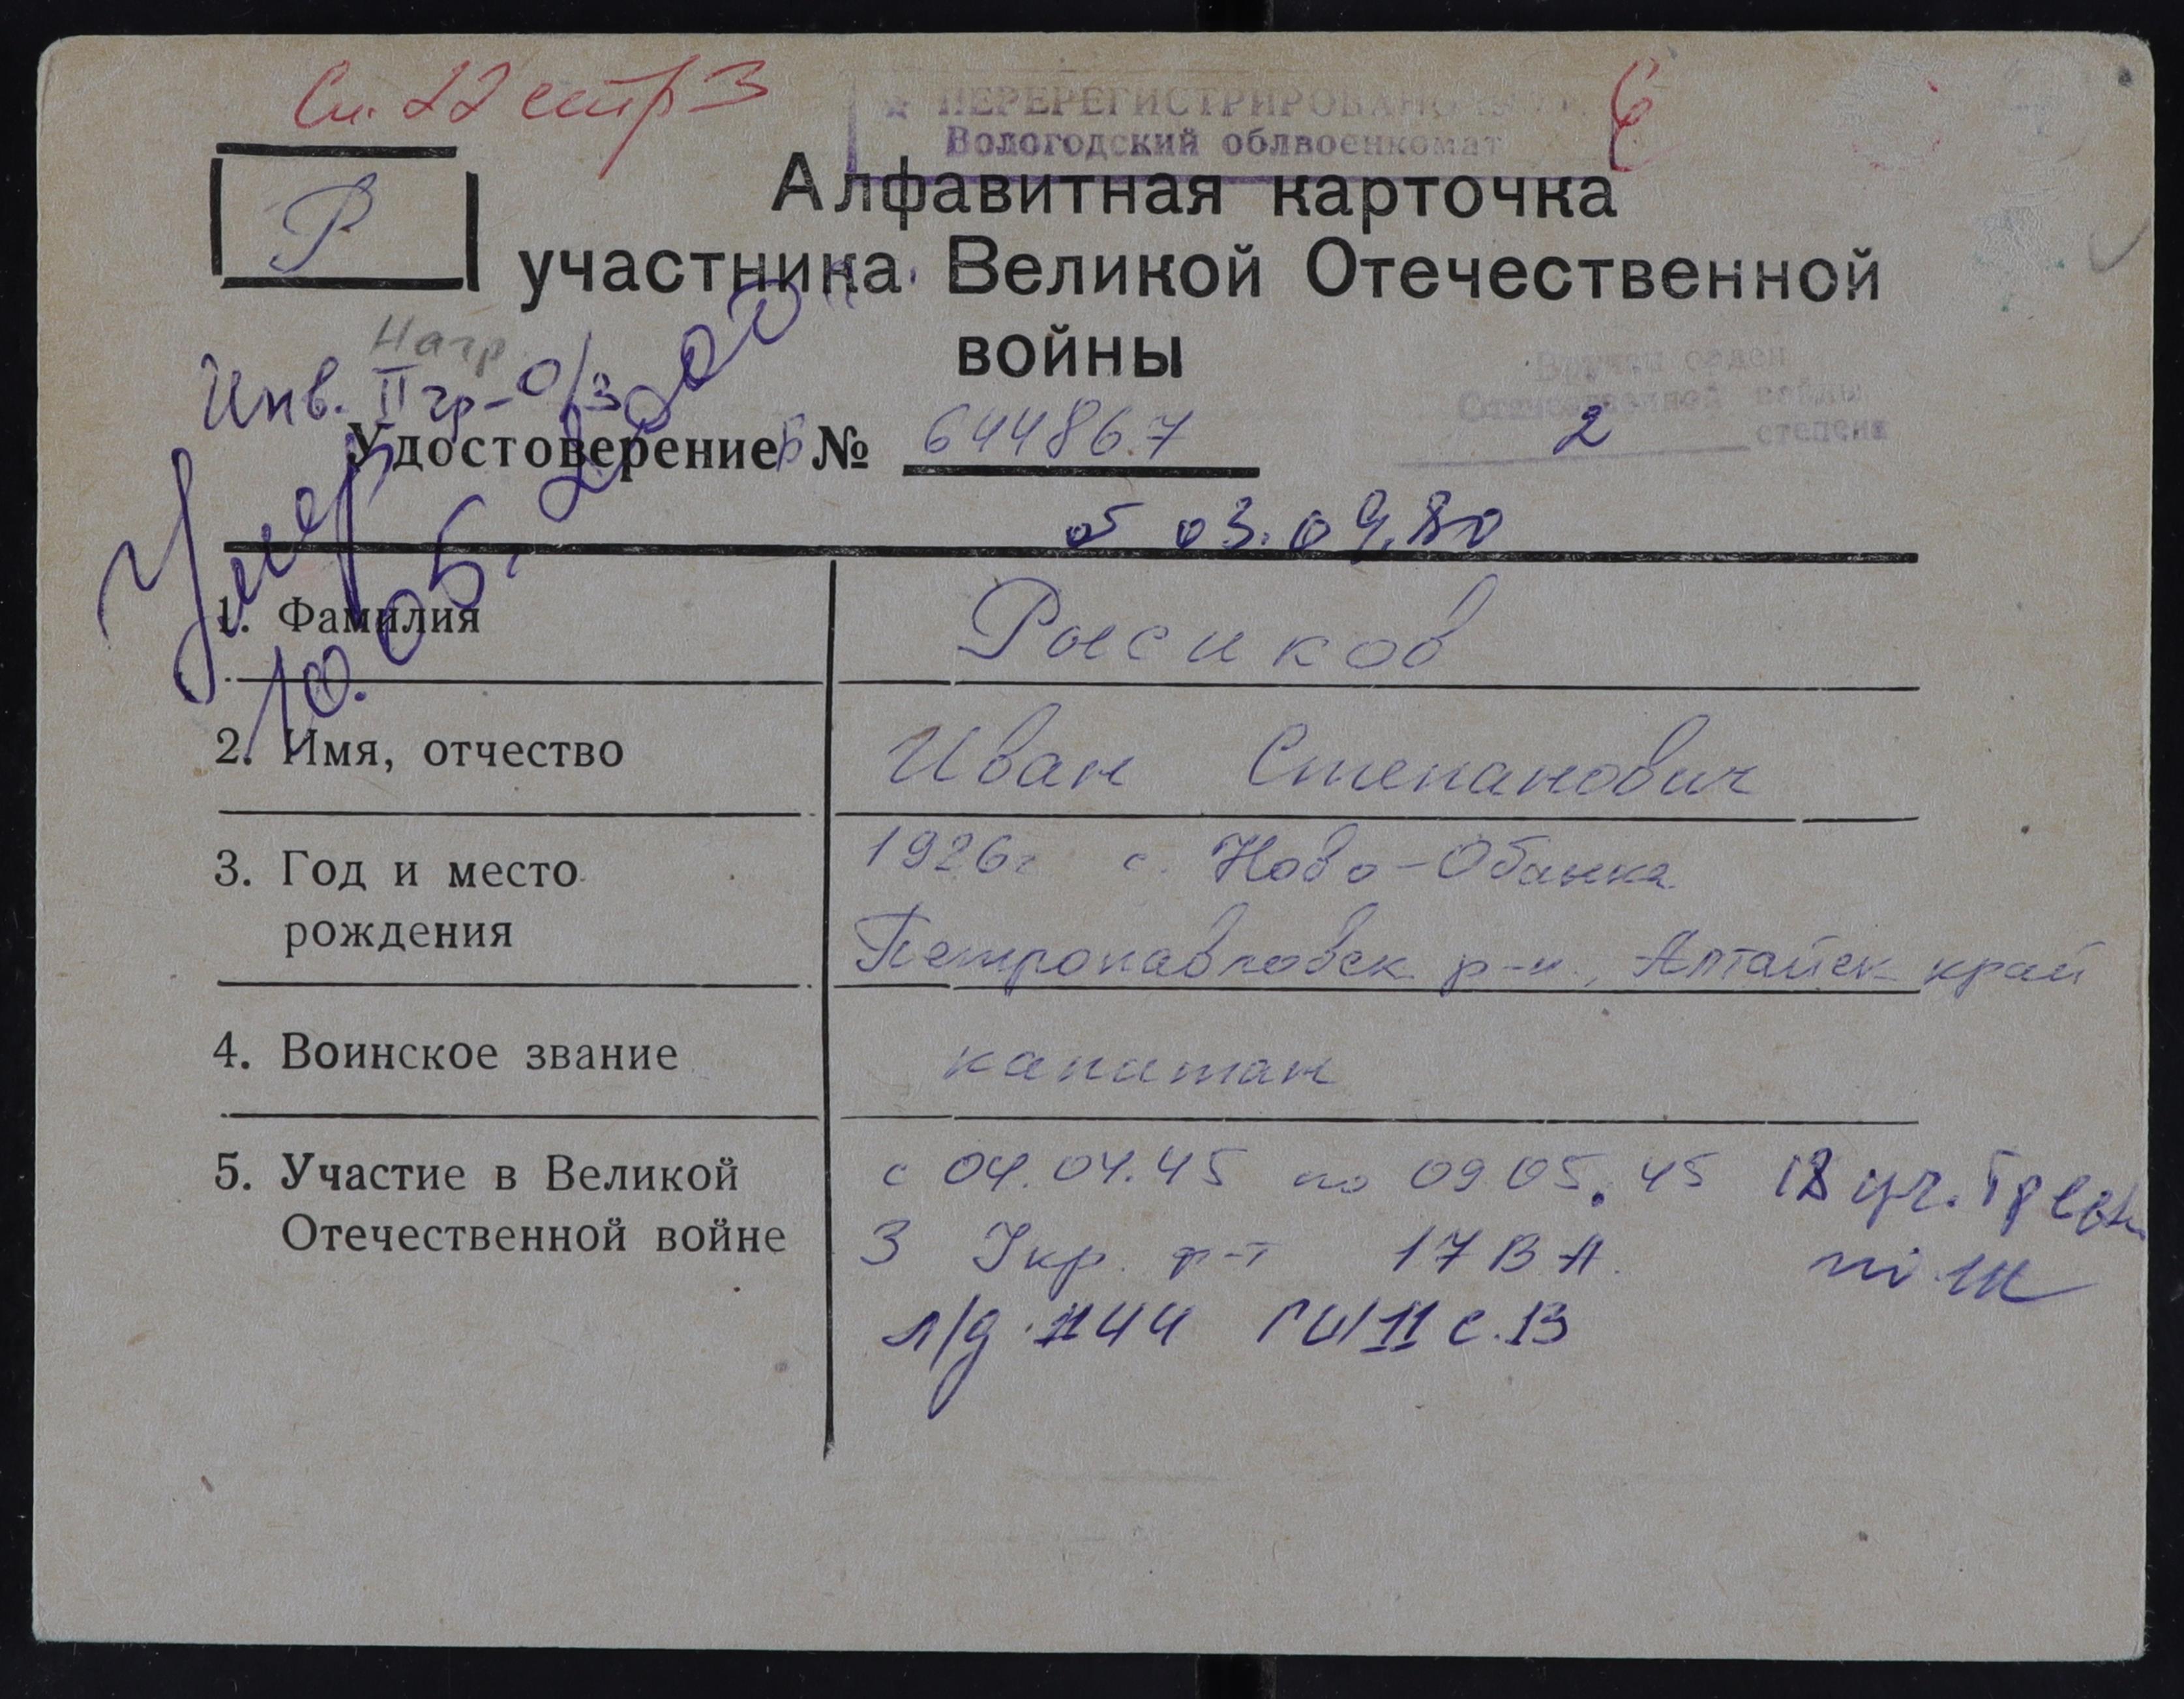 Сп. 22 стр 3
ПЕРЕРЕГИСТРИРОВАН
Вологодский облвоенкомат
Р
Алфавитная карточка
участника Великой Отечественной
войны
Нагр.
Инв. II гр-О/З
Вручен орден
Отечественной войны
2 степени
Удостоверение В № 644867
от 03.09.80
Умер
10.05.2000
1. Фамилия Рысиков
2. Имя, отчество Иван Степанович
3. Год и место рождения 1926г с. Ново-Обинка
Петропавловск р-н, Алтайск край
4. Воинское звание капитан
5. Участие в Великой Отечественной войне с 04.04.45 по 09.05.45 18 уч.
3 Укр. ф-т 17 ВА.
л/д